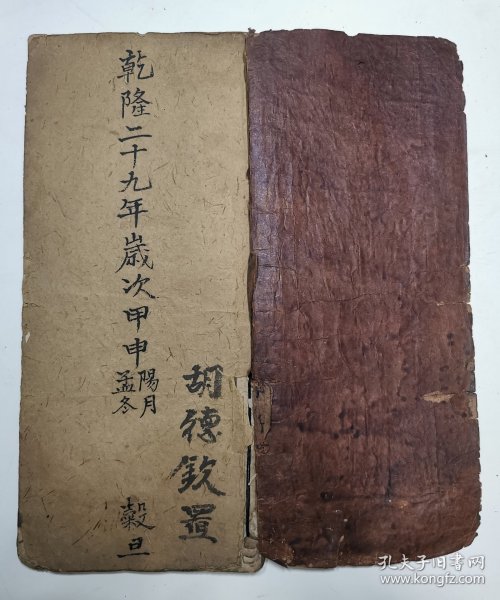 胡德欽置
乾隆二十九年歲次甲申陽月孟冬
穀旦
孔夫子旧书网
www.kongfz.com